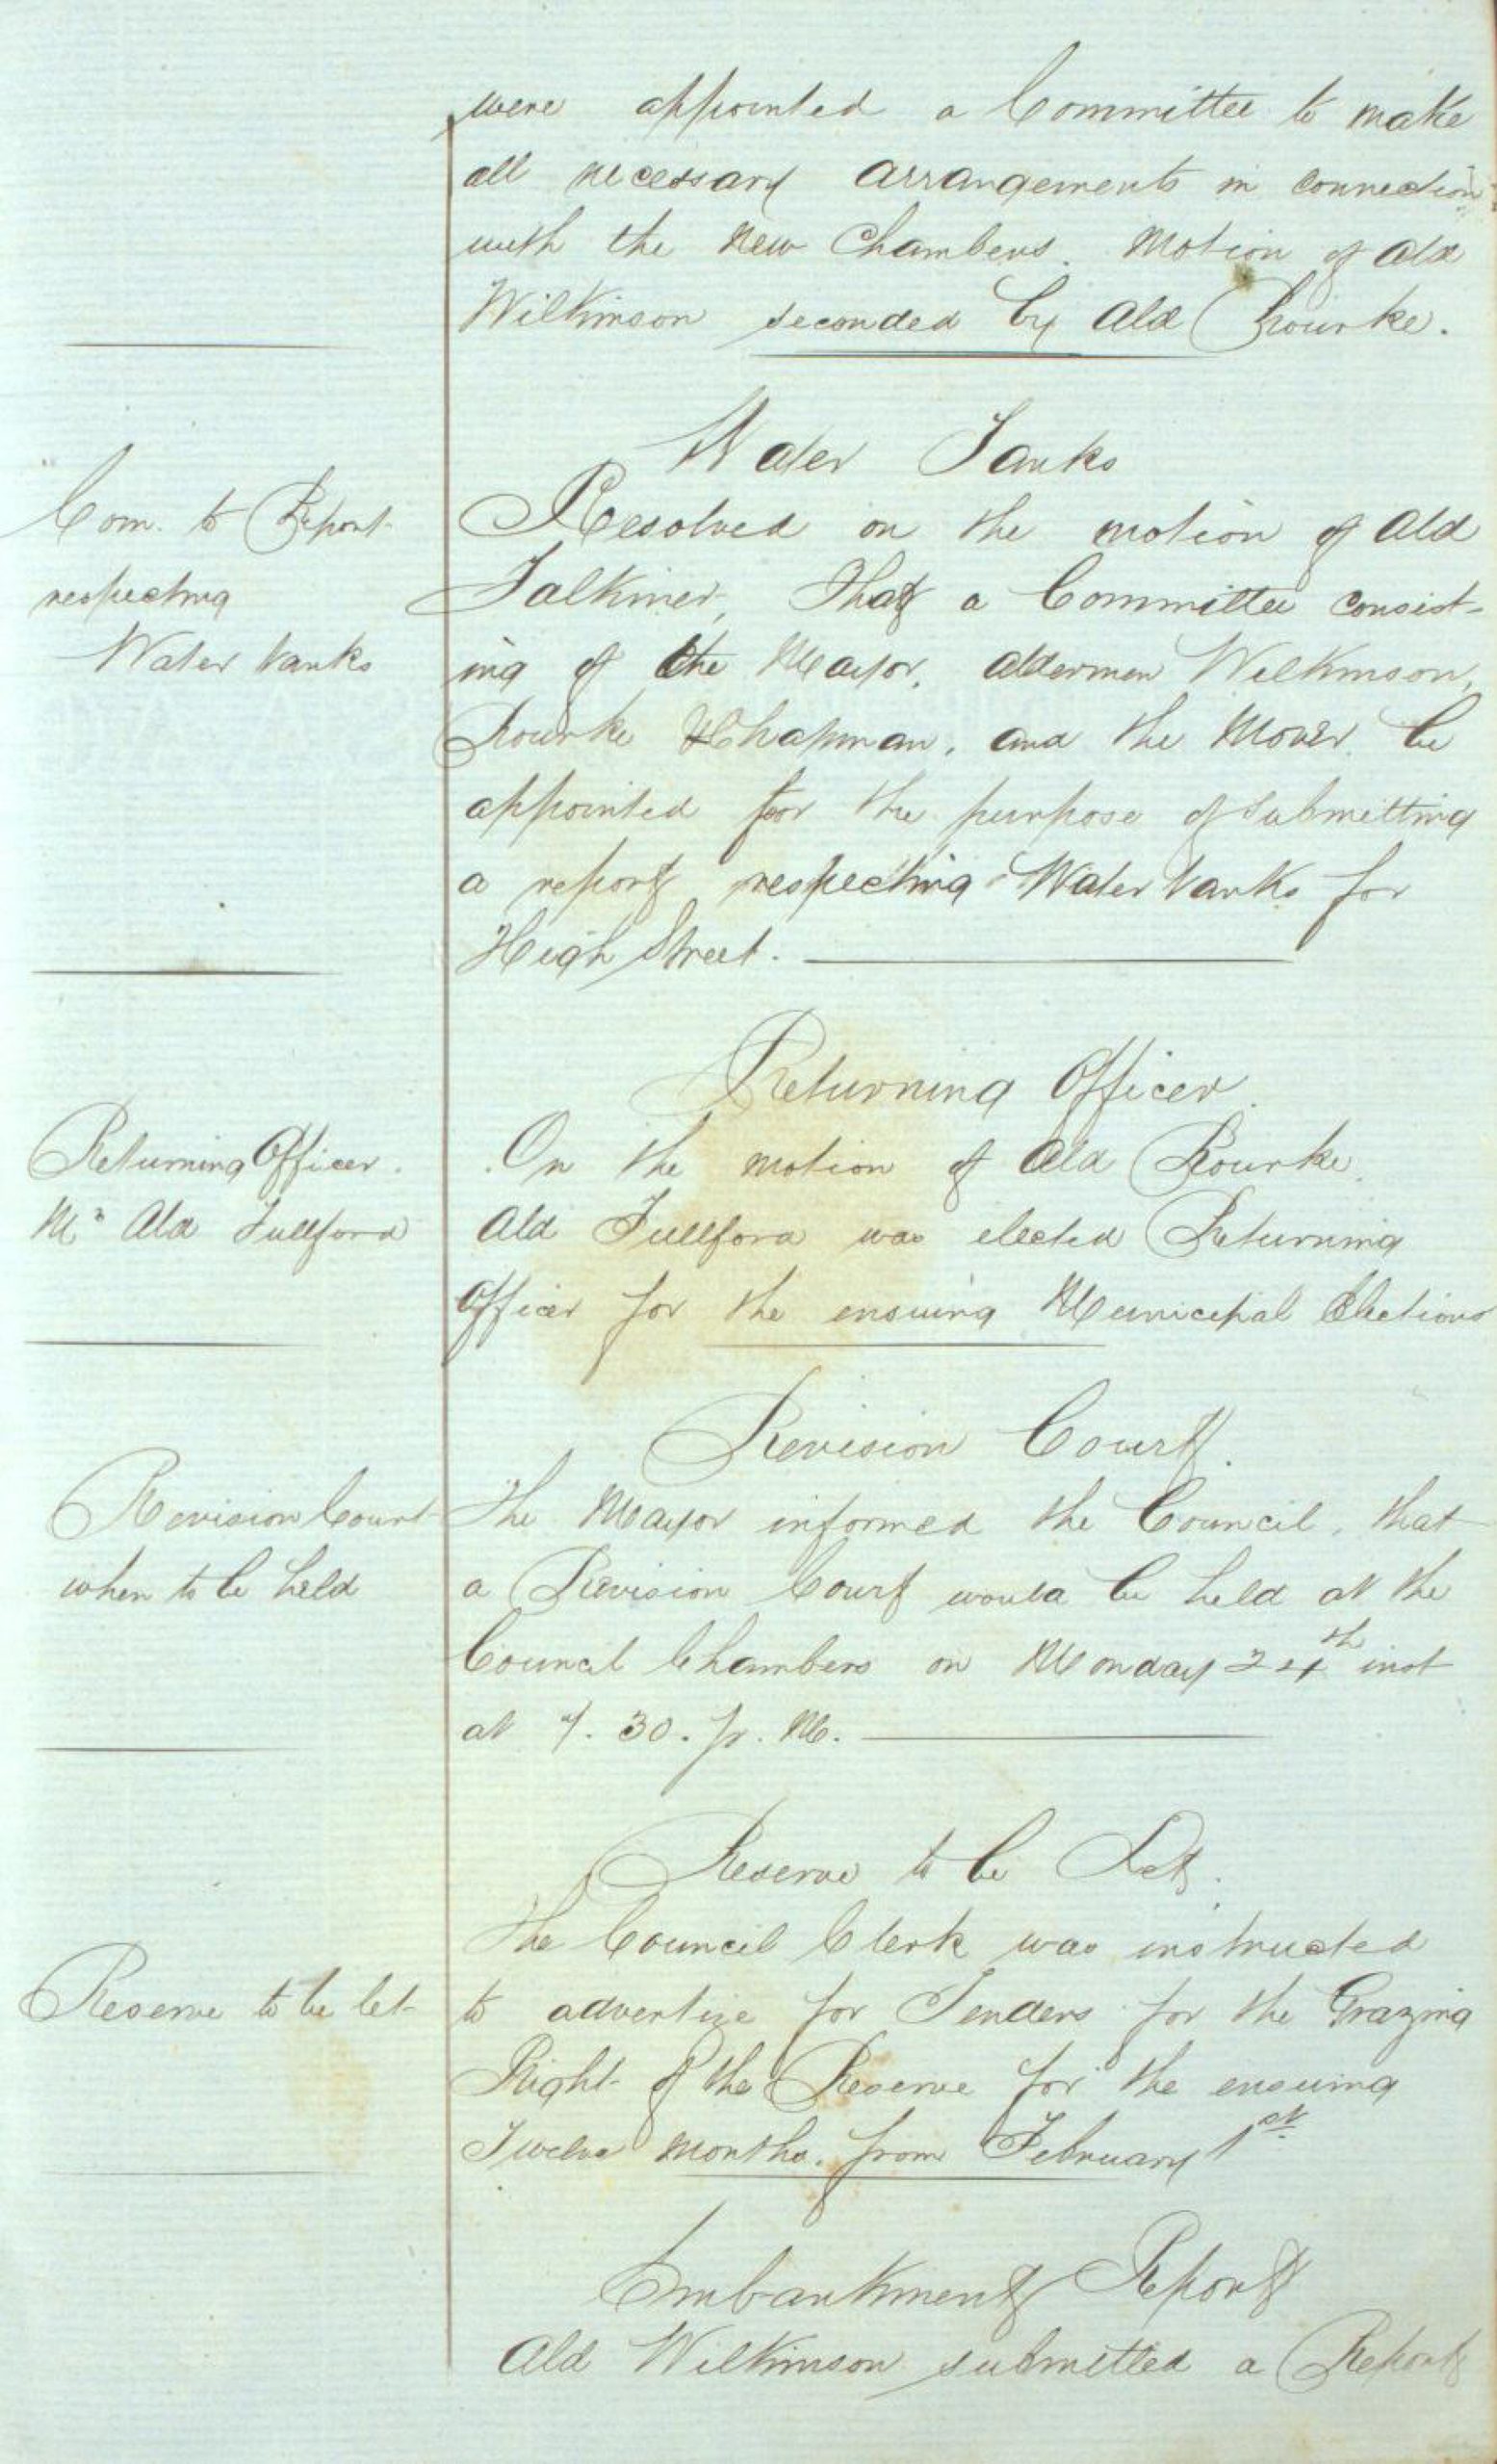 were appointed a Committee to make
all necessary arrangements in connection
with the New Chambers. Motion of Ald
Wilkinson seconded by Ald Rourke.
Water Tanks
Com. to Report
respecting
Water tanks
Resolved on the motion of Ald
Falkiner, That a Committee consist-
ing of the Mayor, Aldermen Wilkinson,
Rourke & Chapman, and the Mover be
appointed for the purpose of submitting
a report respecting Water tanks for
High Street.
Returning Officer
Returning Officer.
Mr Ald Fullford
On the motion of Ald Rourke
Ald Fullford was elected Returning
Officer for the ensuing Municipal Elections
Revision Court.
Revision Court
when to be held
The Mayor informed the Council, that
a Revision Court would be held at the
Council Chambers on Monday 24th inst
at 7.30. p. M.
Reserve to be Let.
Reserve to be let
The Council Clerk was instructed
to advertize for Tenders for the Grazing
Right of the Reserve for the ensuing
Twelve months, from February 1st.
Embankment Report
Ald Wilkinson submitted a Report